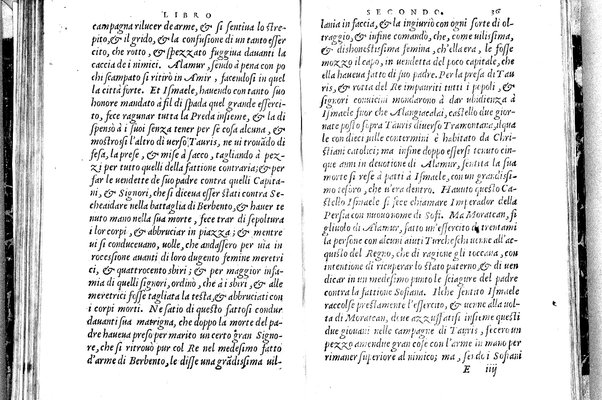 LIBRO
campagna rilucer de arme, & si sentiua lo stre-
pito, il grido, & la confusione di un tanto esser
cito, che rotto, & spezzato fuggiua dauanti la
caccia de i nimici. Alamur, sendo à pena con po
chi scampato si ritirò in Amir, facendosi in quel
la città forte. Et Ismaele, hauendo con tanto suo
honore mandato à fil di spada quel grande esserci-
to, fece ragunar tutta la Preda insieme, & la di
spensò à i suoi senza tener per se cosa alcuna, &
mostrosi l'altro di uerso Tauris, ne ui trouãdo di
fesa, la prese, & mise à sacco, tagliando à pez-
zi per tutto quelli della fattione contraria; & per
far le uendette de suo padre contra quelli Capita-
ni, & Signori, che si diceua esser stati contra Se-
cheaidare nella battaglia di Berbento, & hauer te
nuto mano nella sua morte, fece trar di sepoltura
i lor corpi, & abbruciar in piazza; & mentre
ui si conduceuano, uolle, che andassero per uia in
rocessione auanti di loro dugento femine meretri
ci, & quattrocento sbiri; & per maggior infa-
mia di quelli signori, ordinò, che à i sbiri, & alle
meretrici fosse tagliata la testa, & abbruciati con
i corpi morti. Ne satio di questo fattosi condur
dauanti sua matrigna, che doppo la morte del pa-
dre haueua preso per marito un certo gran Signo-
re, che si ritrouò pur col Re nel medesimo fatto
d'arme di Berbento, le disse una grãdissima uil-
SECONDO. 36
lania in faccia, & la ingiuriò con ogni sorte di ol-
traggio, & infine comandò, che, come uilissima,
& dishonestissima femina, ch'ella era, le fosse
mozzo il capo, in vendetta del poco capitale, che
ella haueua fatto di suo padre. Per la presa di Tau
ris, & rotta del Re impauriti tutti i popoli, &
signori conuicini mandarono à dar ubidienza à
Ismaele fuor che Alangiacalai, castello due gior-
nate posto sopra Tauris diuerso Tramontana, ilqua
le con dieci uille contermini è habitato da Chri-
stiani catolici; ma infine doppo essersi tenuto cin-
que anni in deuotion di Alamur, sentita la sua
morte si rese à patti à Ismaele, con un grandissi-
mo tesoro, che u'era dentro. Hauuto questo Ca-
stello Ismaele si fece chiamar Imperador della
Persia con nuouo nome di Sofi. Ma Moratcan, fi
gliuolo di Alamur, fatto un'essercito di trentami
la persone con alcuni aiuti Turcheschi uenne all'ac
quisto del Regno, che di ragione gli toccaua, con
intentione di ricuperar lo stato paterno, & di uen
dicar in un medesimo punto le sciagure del padre
contra la fattione Sofiana. Ilche sentito Ismaele
raccolse prestamente l'essercito, & uenne alla uol-
ta di Moratcan, doue azzuffatisi insieme questi
due giouani nelle campagne di Tauris, fecero un
pezzo amendue gran cose con l'arme in mano per
rimaner superiore al nimico; ma, sendo i Sofiani
E iiij